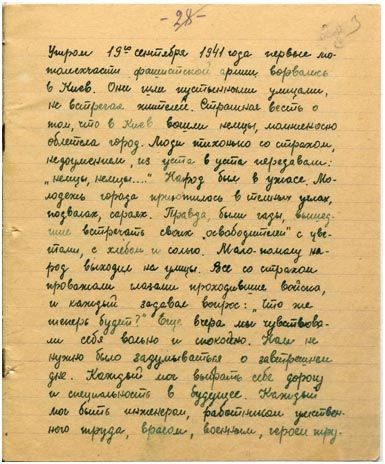 -28-
283
Утром 19го сентября 1941 года первые мо-
томехчасти фашистской армии ворвались
в Киев. Они шли пустынными улицами,
не встречая жителей. Страшная весть о
том, что в Киев вошли немцы, молниеносно
облетела город. Люди тихонько со страхом,
недоумением, из уста в уста передавали:
„немцы, немцы...." Народ был в ужасе. Мо-
лодежь города приютилось в темных углах,
подвалах, сараях. Правда, были гады, вышед-
шие встречать своих „освободителей" с цве-
тами, с хлебом и солью. Мало-помалу на-
род выходил на улицы. Все со страхом
провожали глазами проходившие войска,
и каждый задавал вопрос: „Что же
теперь будет?" Еще вчера мы чувствова-
ли себя вольно и спокойно. Нам не
нужно было задумываться о завтрашнем
дне. Каждый мог выбрать себе дорогу
и специальность в будущее. Каждый
мог быть инженером, работником умствен-
ного труда, врачом, военным, героем тру-